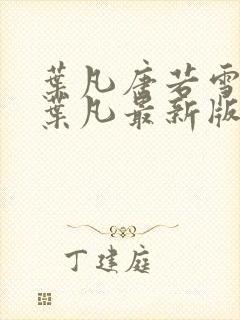 葉凡唐若雪
葉凡最新版
丁建庭